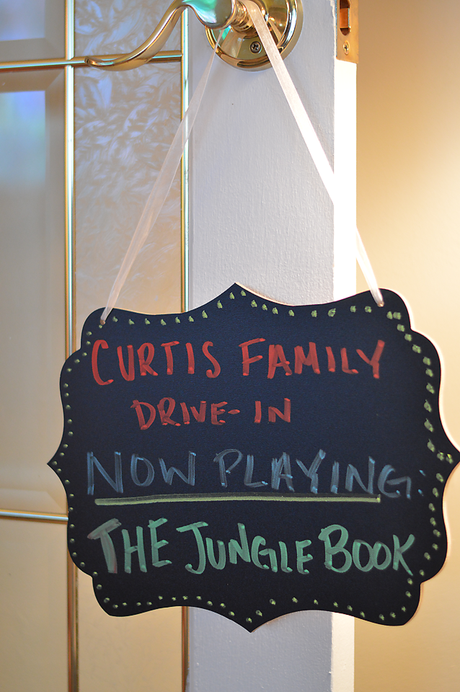 CURTIS FAMILY
DRIVE-IN
NOW PLAYING:
THE JUNGLE BOOK